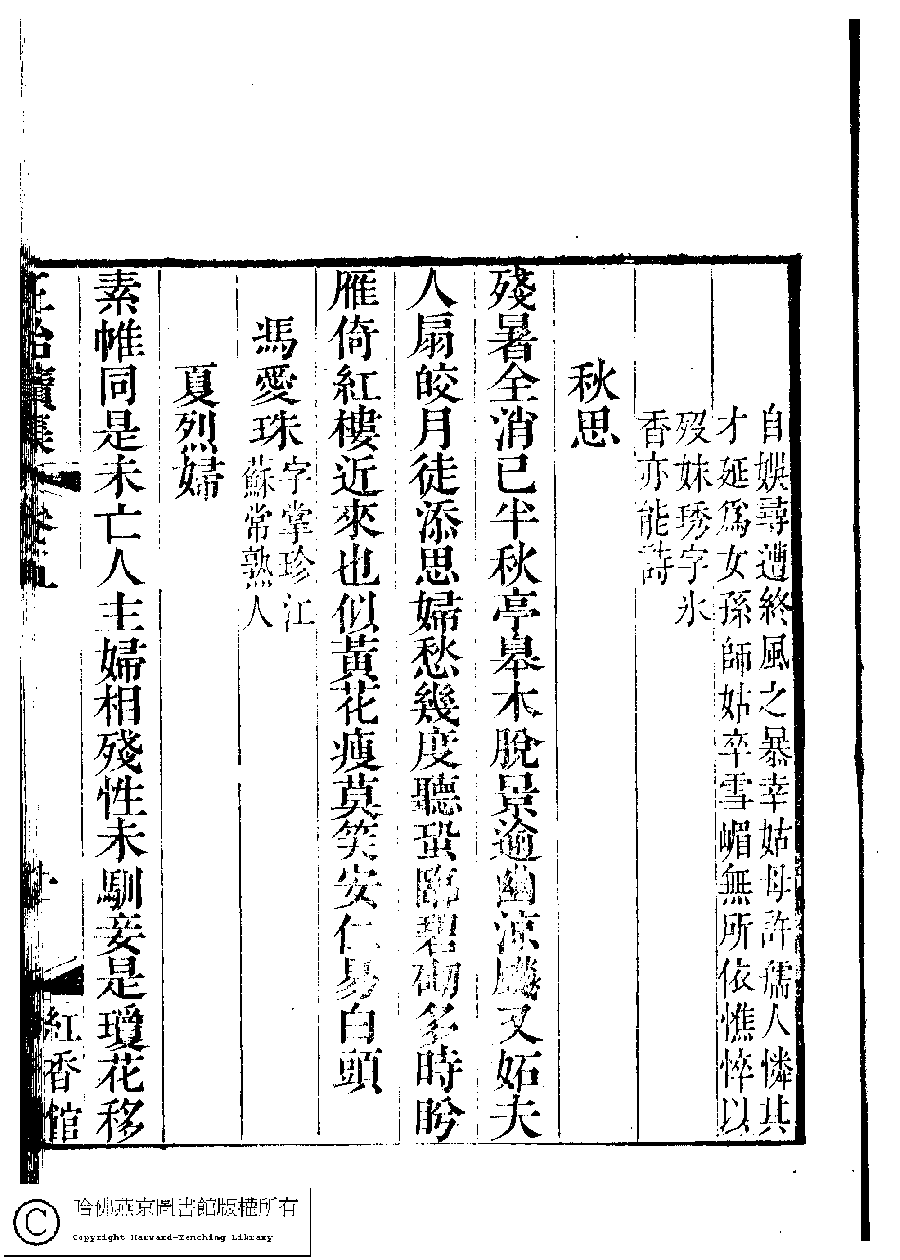 自娛尋遭終風之暴幸姑母許孺人憐其
才延爲女孫師姑卒雪嵋無所依憔悴以
歿妹琇字氷
香亦能詩
秋思
殘暑全消已半秋亭臯木脫景逾幽涼颷又妬夫
人扇皎月徒添思婦愁幾度聽蛩臨碧砌多時盻
雁倚紅樓近來也似黃花瘦莫笑安仁易白頭
馮愛珠
字掌珍江
蘇常熟人
夏烈婦
素帷同是未亡人主婦相殘性未馴妾是瓊花移
正始續集
卷五
紅香館
哈佛燕京圖書館版權所有
Copyright Harvard-Yenching Library